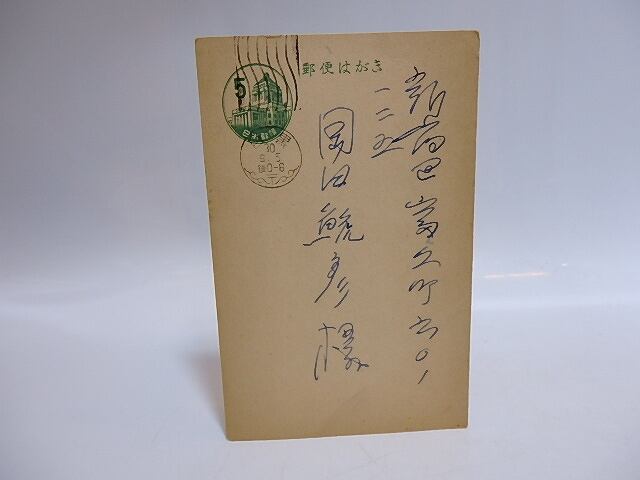 郵便はがき
5
日本郵便
新宿区富久町
一二五
岡田鯱彦様